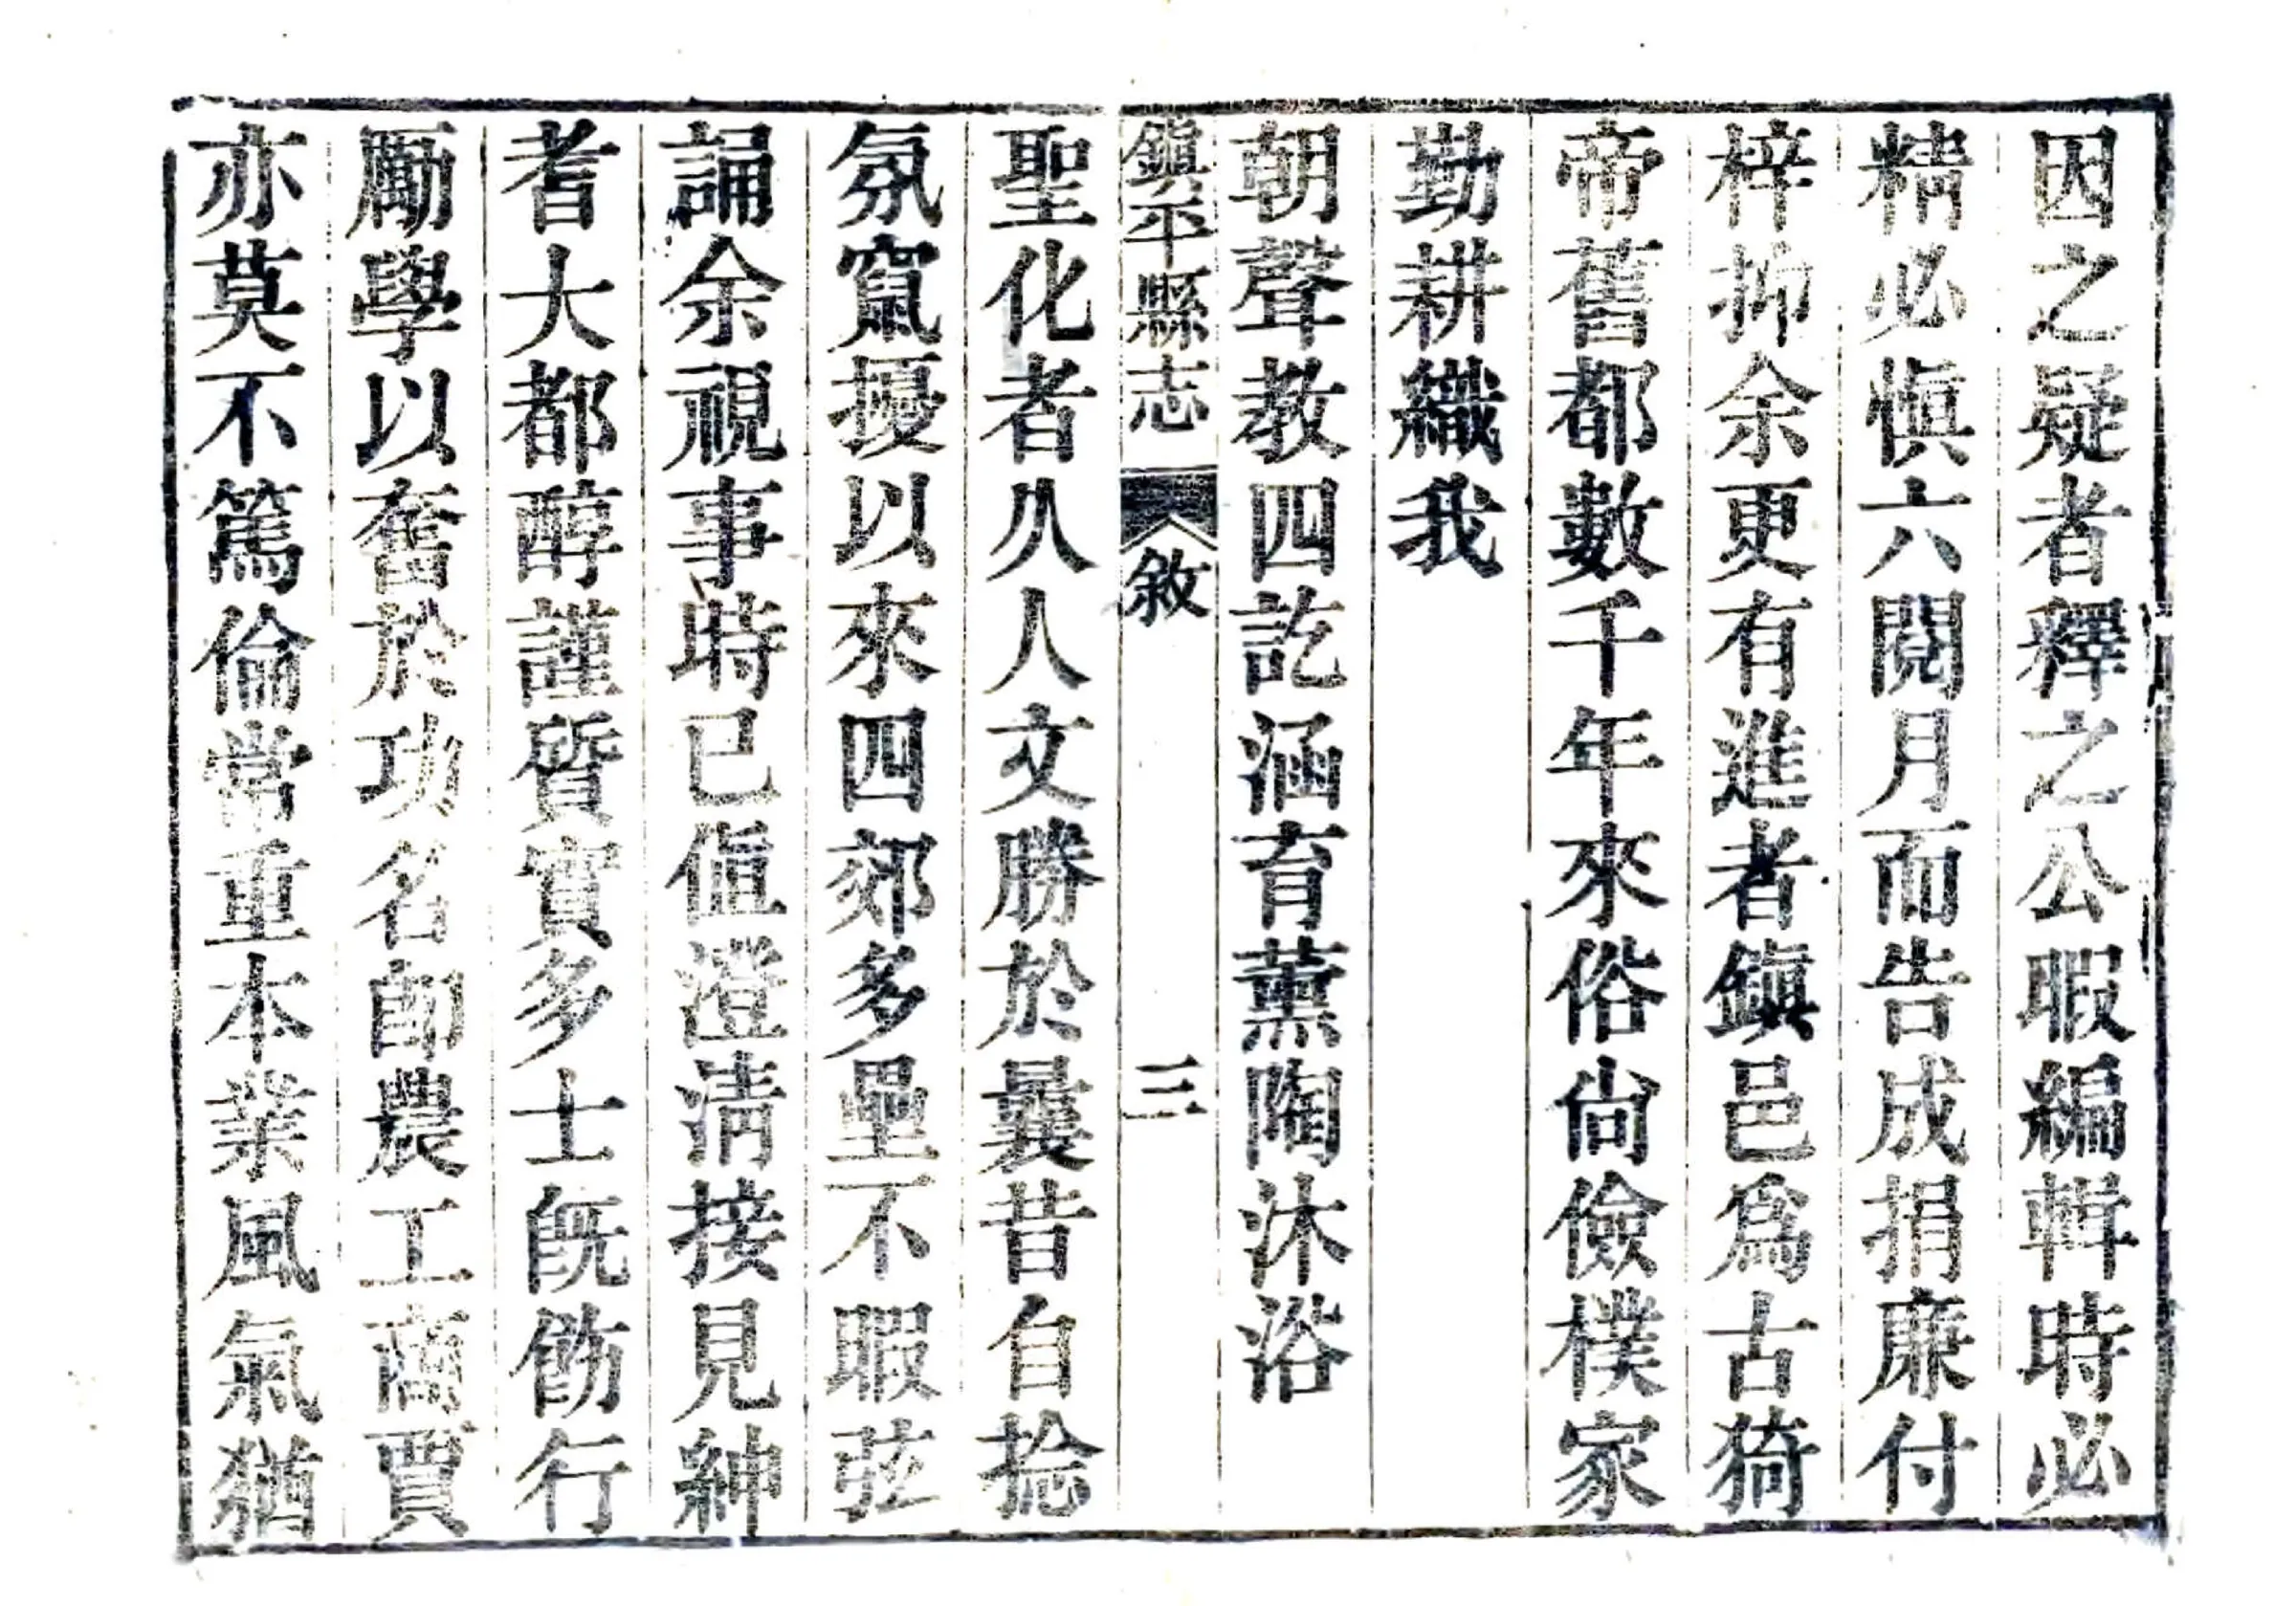 因之疑者釋之公暇編輯時必
精必慎六閱月而告成捐廉付
梓抑余更有進者鎭邑爲古猗
帝舊都數千年來俗尙儉樸家
勤耕織我
朝聲教四訖涵育薰陶沐浴
鎭平縣志
敘
三
聖化者久人文勝於曩昔自捻
氛竄擾以來四郊多壘不暇弦
誦余視事時已値澄淸接見紳
耆大都醇謹質實多士旣飭行
勵學以奮於功名卽農工商賈
亦莫不篤倫常重本業風氣猶